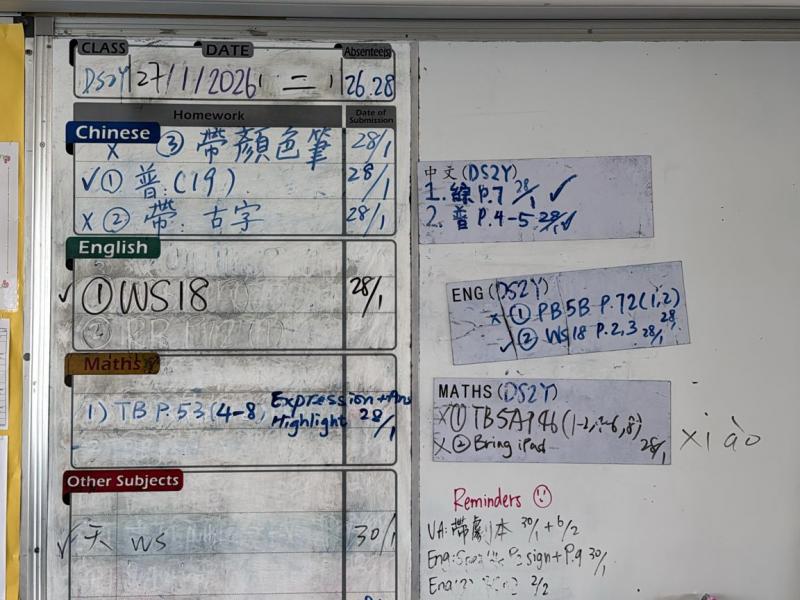 CLASS DATE Absentee(s)
DS2Y 27/1/2026 二 26.28
Homework Date of Submission
Chinese
x ③ 帶顏色筆 28/1
✓① 普:(19) 28/1
x ② 帶: 古字 28/1
English
✓ ① WS18 28/1
Maths
1) TB P.53 (4-8, Expression+Ans
Highlight 28/1
Other Subjects
✓ 天 WS 30/1
中文(DS2Y)
1. 綜 P.7 28/1 ✓
2. 普 P.4-5 28/1 ✓
ENG (DS2Y)
x ① PB 5B P.72(1,2)
✓ ② WS18 P.2,3 28/1
MATHS (DS2Y)
x ① TB5A P.46
x ② Bring iPad 28/1
xiào
Reminders
VA: 帶劇本 30/1 + 6/2
Eng: sign + P.9 30/1
Eng 2/2